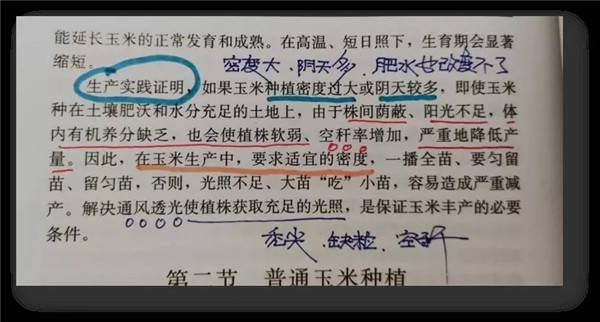 能延长玉米的正常发育和成熟。在高温、短日照下，生育期会显著
缩短。
密度大、阴天多，肥水好改变不了
生产实践证明，如果玉米种植密度过大或阴天较多，即使玉米
种在土壤肥沃和水分充足的土地上，由于株间荫蔽、阳光不足，体
内有机养分缺乏，也会使植株软弱、空秆率增加，严重地降低产
量。因此，在玉米生产中，要求适宜的密度，一播全苗、要匀留
苗、留匀苗，否则，光照不足、大苗“吃”小苗，容易造成严重减
产。解决通风透光使植株获取充足的光照，是保证玉米丰产的必要
条件。
秃尖 缺粒 空秆
第二节 普通玉米种植